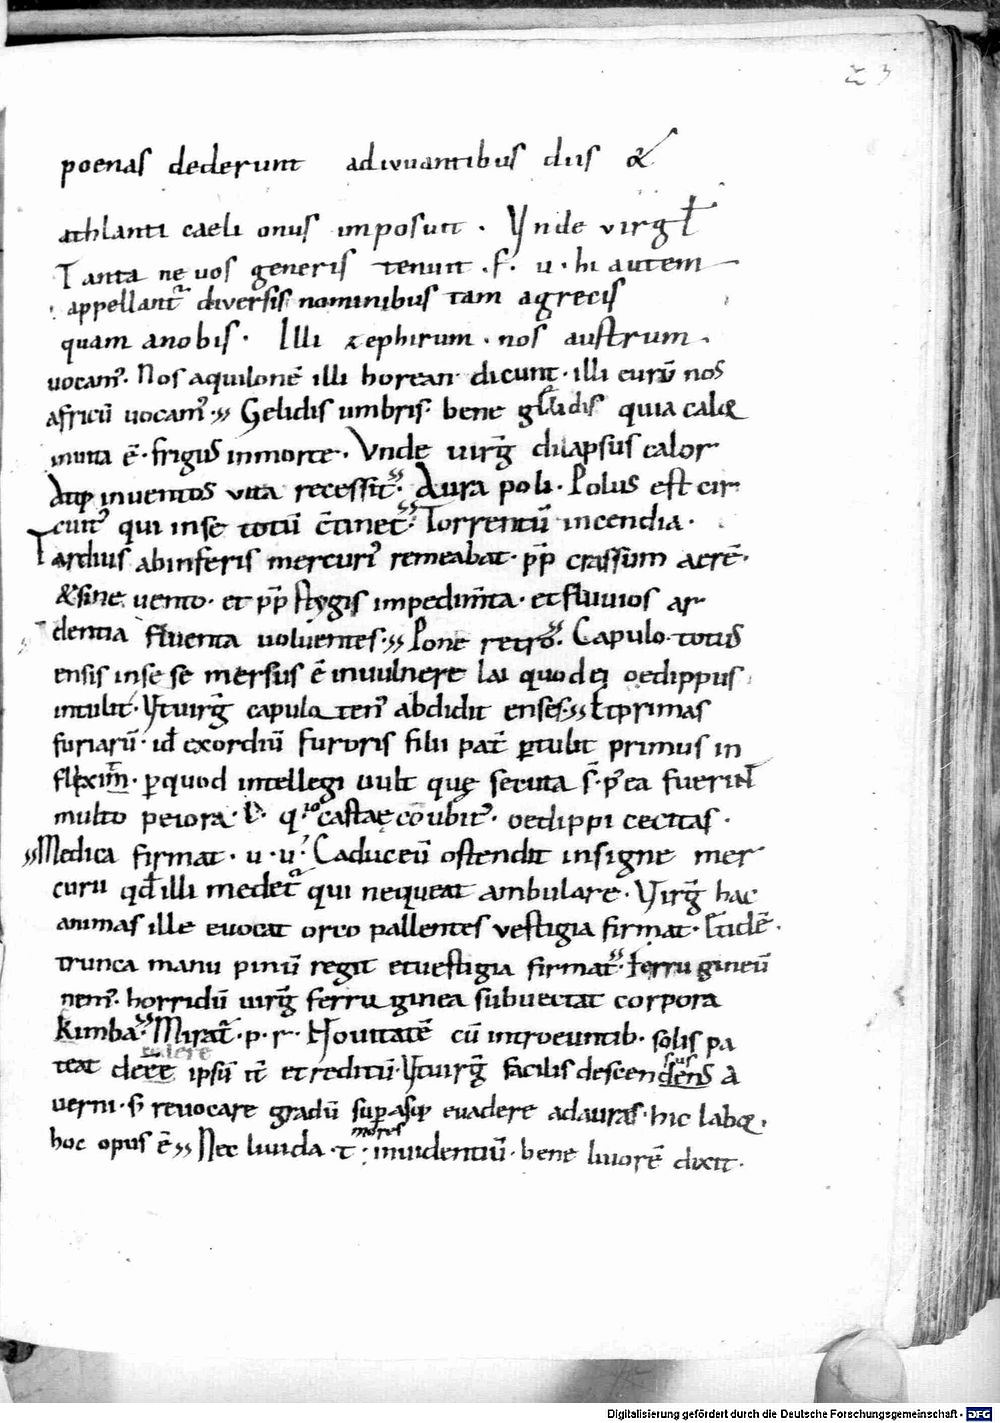 23
poenas dederunt adiuuantibus diis &
athlanti caeli onus imposuit . Vnde virgł
Tanta ne uos generis tenuit .f. u. hi autem
appellant᷑ diversis nominibus tam agrecis
quam anobis. Illi zephirum. nos austrum.
uocam᾿. Nos aquilonē illi borean dicunt. illi eurū nos
africū uocam᾿. Gelidis umbris. bene gelidis quia caloꝛ
inuita ē. frigus inmorte. Vnde uirg̅ dilapsus calor
Atq; inuentos vita recessit. Aura poli. Polus est cir
cuit᾿ qui inse totū c̄tinet᷑. Torrentū incendia.
Tardius abinferis mercuri᾿ remeabat. pp̄ crassum aerē.
& sine uento. et pp̄ stygis impedim̄ta. et fluuios ar
dentia fluenta uoluentes. Pone retro. Capulo totus
ensis inse se mersus ē inuulnere lai quod ei oedippus
intulit. Vt uirg̅ capulo ten᾿ abdidit enses. Et primas
furiarū. id exordiū furoris filii pat᷑ ꝑtulit primus in
flexim̄. ꝑ quod intellegi uult quę secuta s̄. p᾿ ea fuerint
multo peiora. castae c̄oubit᾿. oedippi cecitas.
Medica firmat. u. u. Caduceū ostendit insigne mer
curii qd̄ illi medet᷑ qui nequeat ambulare. Virg̅ hac
animas ille euocat orco pallentes vestigia firmat. Itidē.
trunca manu pinū regit et uestigia firmat. Ferrugineū
nem᾿. horridū uirg̅ ferruginea subuectat corpora
kimba. Mirat᷑. p. r. Nouitatē cū introeuntib. solis pa
teat dc̄ēē ipsū et reditū. Vt uirg̅ facilis descensus A
uerni. s; revocare gradū suꝑasq; euadere adauras. hic laboꝛ.
hoc opus ē Nec liuida. t. inuidentiū. bene liuorē dixit.
Digitalisierung gefördert durch die Deutsche Forschungsgemeinschaft - DFG